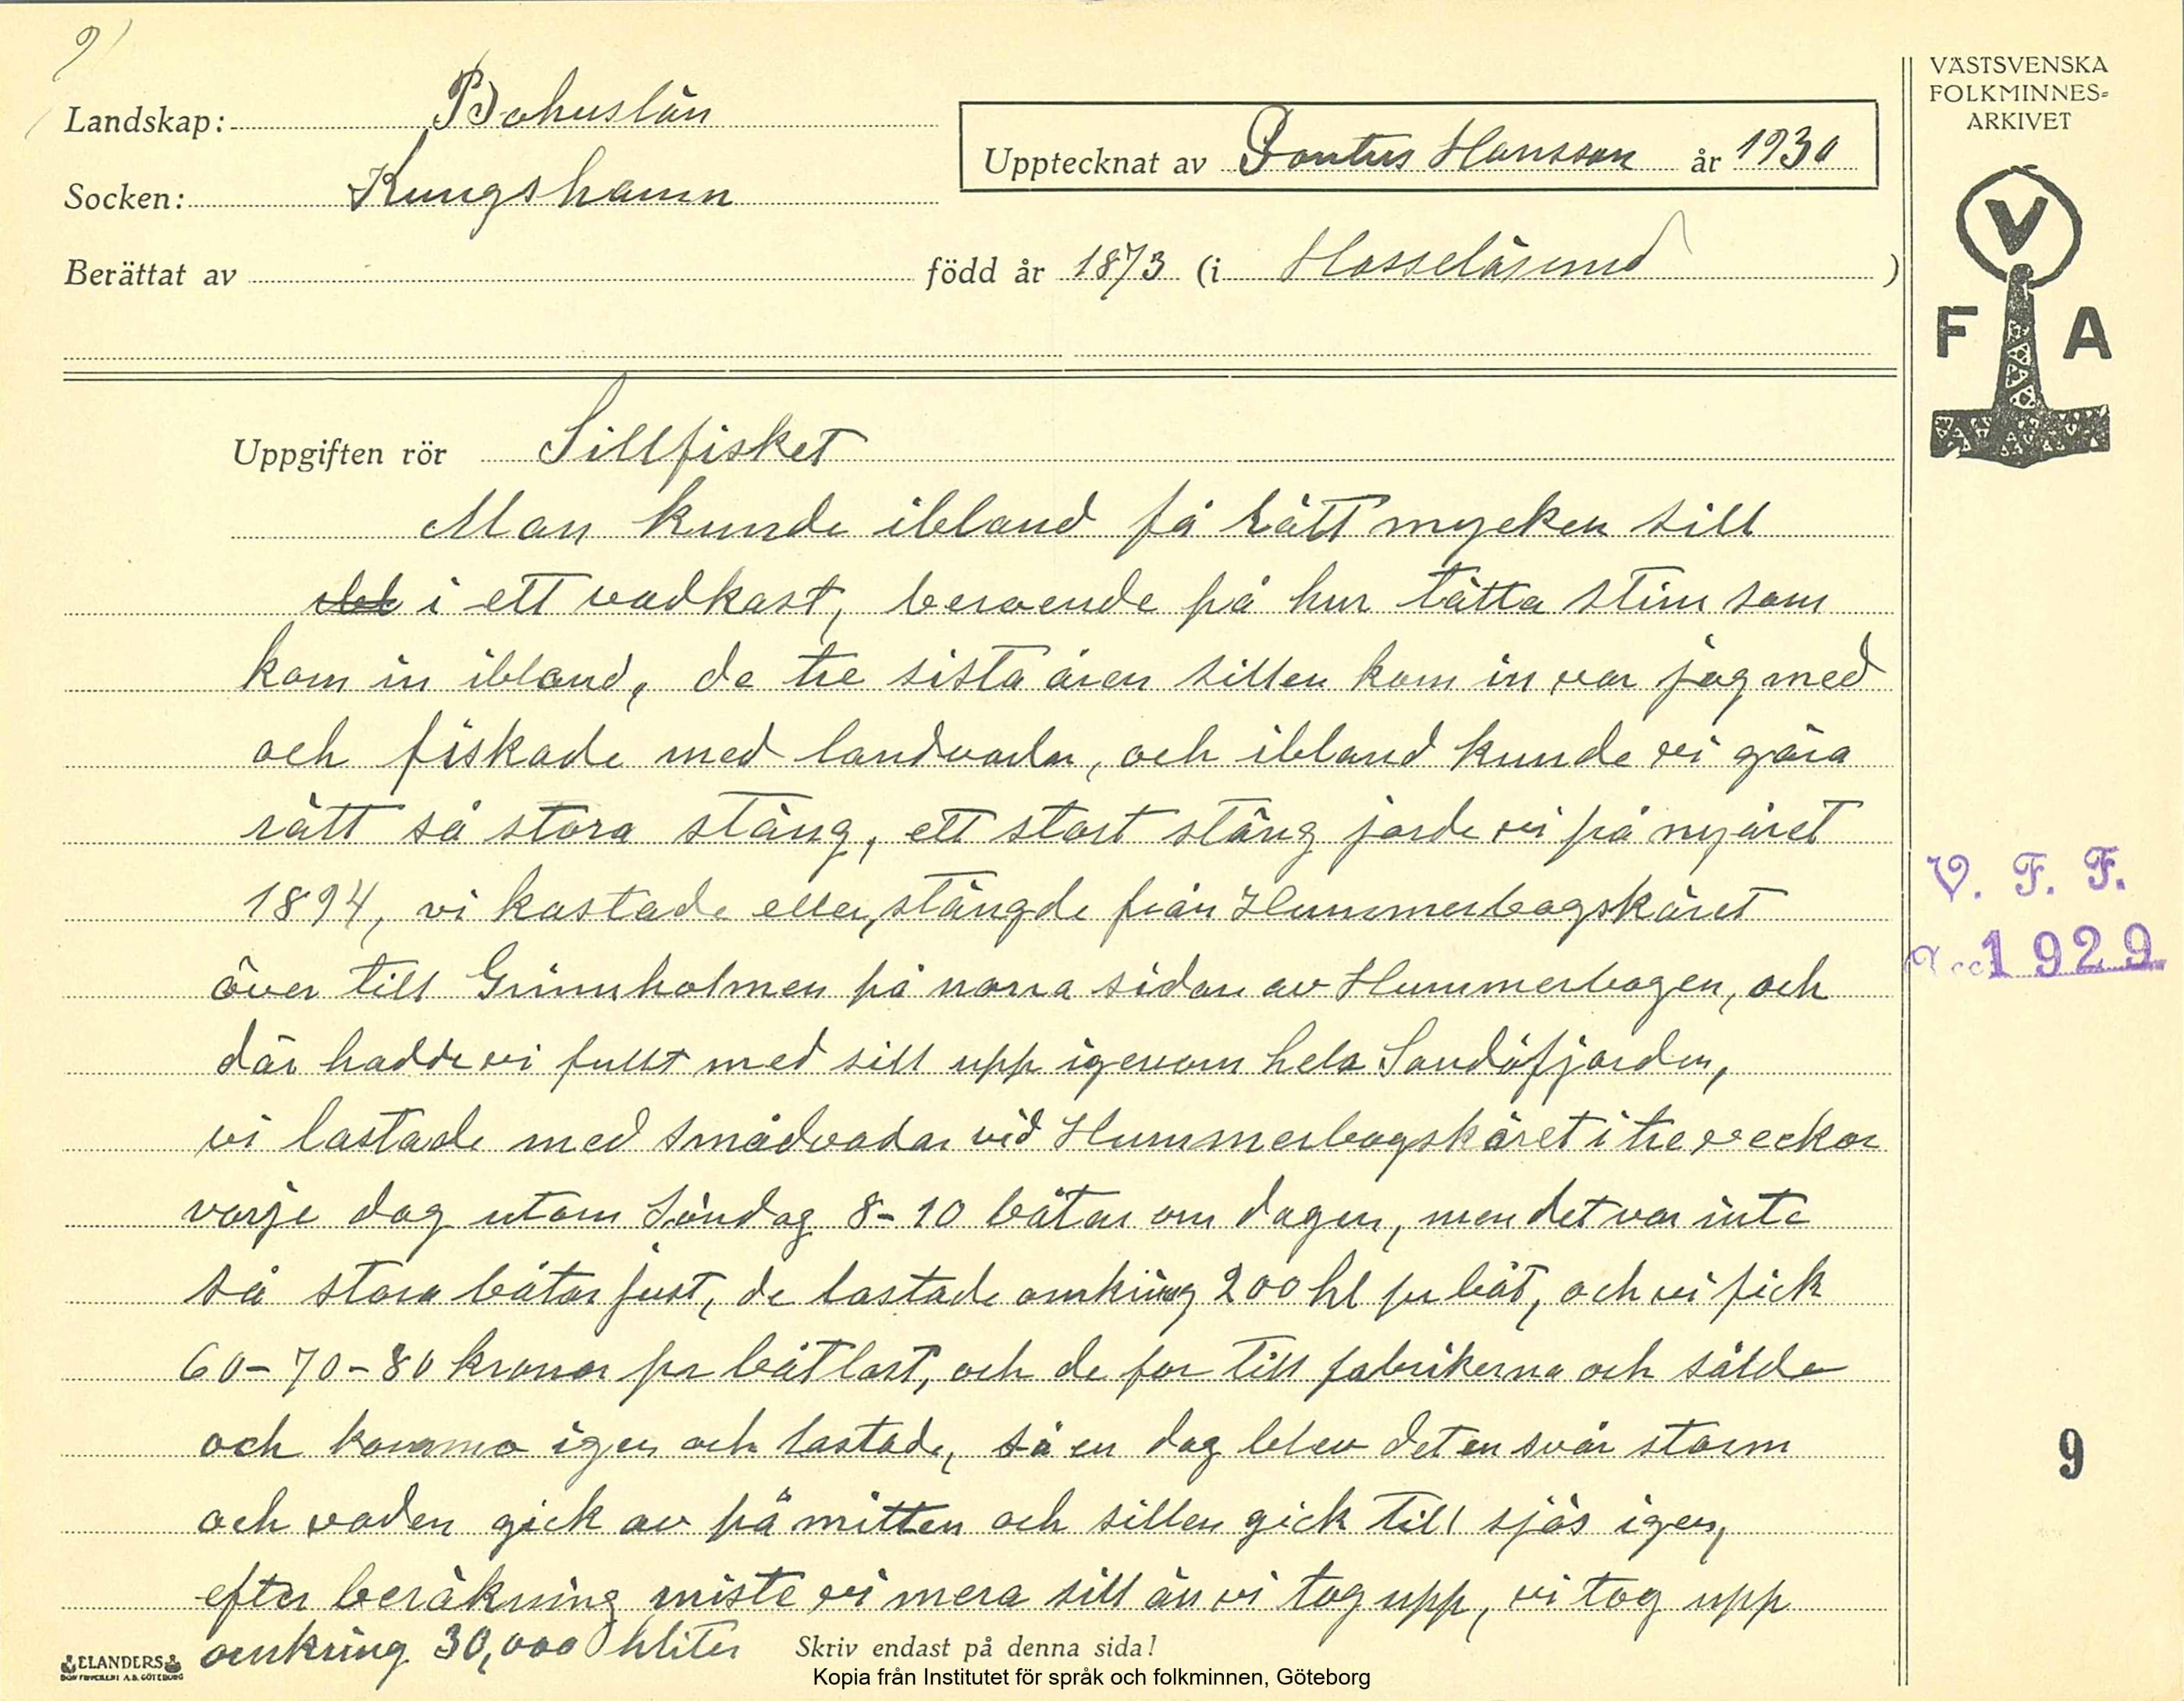 9)
Landskap: Bohuslän
Socken: Kungshamn
Upptecknat av Pontus Hansson år 1930
Berättat av född år 1873 (i Hasselösund )
Uppgiften rör Sillfisket
Man kunde ibland få rätt mycken sill
i ett vadkast, beroende på hur tätta stim som
kom in ibland, de tre sista åren sillen kom in var jag med
och fiskade med landvadar, och ibland kunde vi göra
rätt så stora stäng, ett stort stäng jorde vi på nyåret
1894, vi kastade eller, stängde från Hummerbogskäret
över till Grinnholmen på norra sidan av Hummerbogen, och
där hadde vi fullt med sill upp igenom hela Sandöfjorden,
vi lastade med smådvadar vid Hummerbogskäret i tre veckor
varje dag utom Söndag 8-10 båtar om dagen, men det var inte
så stora båtar just, de lastade omkring 200 hl pr båt, och vi fick
60-70-80 kronor pr båtlast, och de for till fabrikerna och sålde
och kommo igen och lastade, så en dag blev det en svår storm
och vaden gick av på mitten och sillen gick till sjös igen,
efter beräkning miste vi mera sill än vi tog upp, vi tog upp
omkring 30,000 hliter
Skriv endast på denna sida!
ELANDERS
BOKTRYCKERI A.B. GÖTEBORG
Kopia från Institutet för språk och folkminnen, Göteborg
VÄSTSVENSKA
FOLKMINNES=
ARKIVET
V
F A
V. F. F.
1929
9